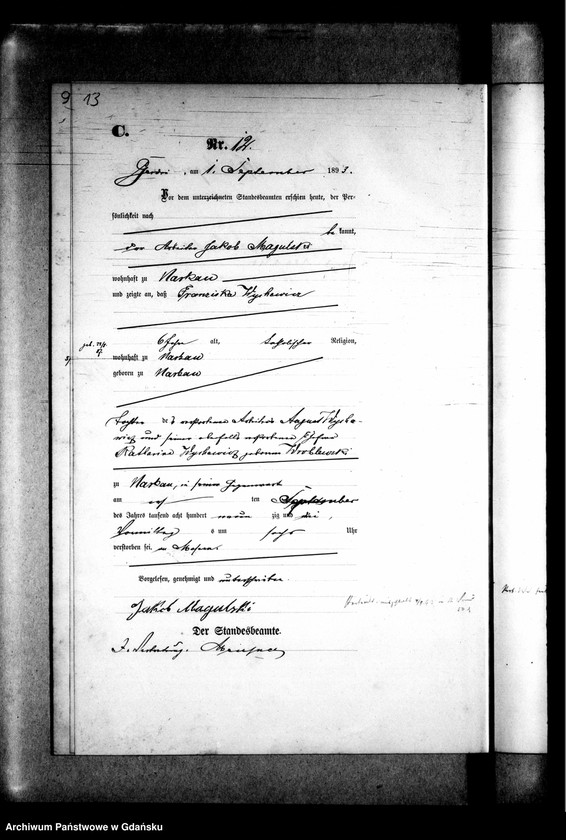 9 13
C.
Nr. 12.
am 1. September 1893.
Vor dem unterzeichneten Standesbeamten erschien heute, der Per-
sönlichkeit nach
be kannt,
der Arbeiter Jakob Magulski
wohnhaft zu Narkau
und zeigte an, daß Franziska Wyskewicz
6 Jahre alt, katholischer Religion,
wohnhaft zu Narkau
geboren zu Narkau
Tochter des verstorbenen Arbeiters August Wyske-
wicz und seiner ebenfalls verstorbenen Ehefrau
Katharina Wyskewicz geborenen Wroblewski
zu Narkau, in seiner Gegenwart
am ten September
des Jahres tausend acht hundert neun zig und drei,
Vormittags um sechs Uhr
verstorben sei.
Vorgelesen, genehmigt und unterschrieben
Jakob Magulski
Der Standesbeamte.
Archiwum Państwowe w Gdańsku